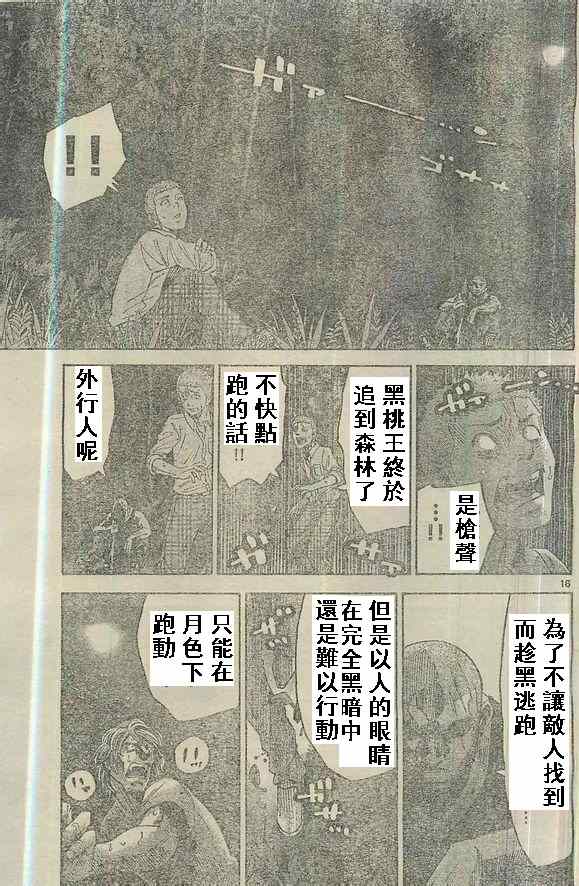 !!
ギァ
ギャァァ
是槍聲
…!!
黑桃王終於
追到森林了
不快點
跑的話!!
外行人呢
16
為了不讓敵人找到
而趁黑逃跑
但是以人的眼睛
在完全黑暗中
還是難以行動
只能在
月色下
跑動
!!
!!